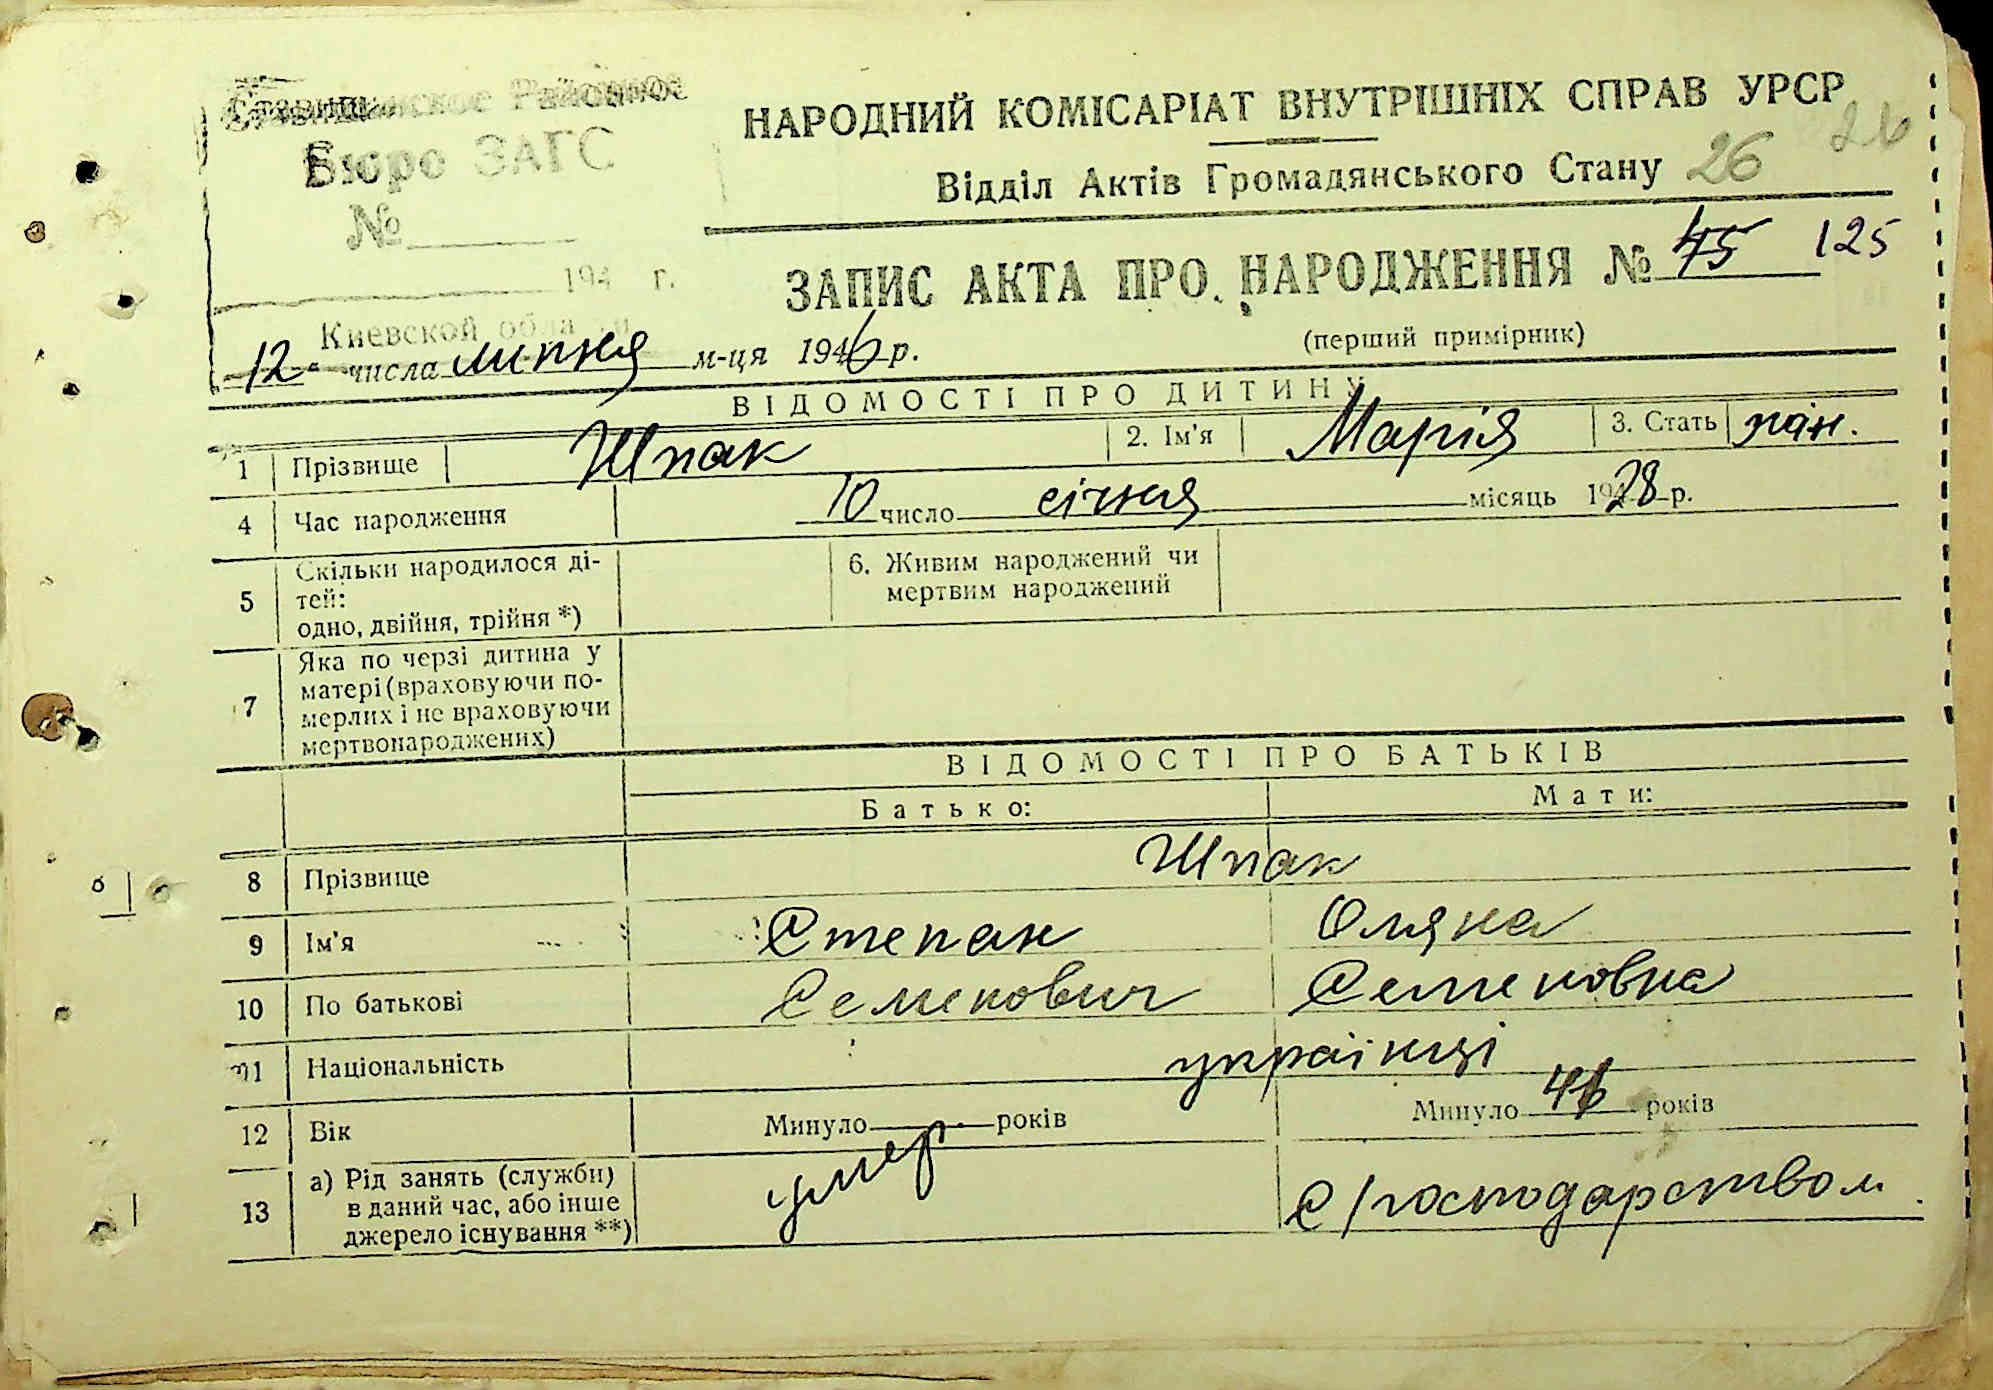 Ставищанское Районное
Бюро ЗАГС
№
194 г.
Киевской области
НАРОДНИЙ КОМІСАРІАТ ВНУТРІШНІХ СПРАВ УРСР
26
Відділ Актів Громадянського Стану 26
ЗАПИС АКТА ПРО НАРОДЖЕННЯ № 45 125
(перший примірник)
12 числа липня м-ця 1946 р.
ВІДОМОСТІ ПРО ДИТИНУ
1 Прізвище Шпак 2. Ім'я Марія 3. Стать жін.
4 Час народження 10 число січня місяць 1928 р.
5 Скільки народилося ді-
тей:
одно, двійня, трійня *)
6. Живим народжений чи
мертвим народжений
7 Яка по черзі дитина у
матері (враховуючи по-
мерлих і не враховуючи
мертвонароджених)
ВІДОМОСТІ ПРО БАТЬКІВ
Батько: Мати:
8 Прізвище Шпак
9 Ім'я Степан Оляна
10 По батькові Семенович Семеновна
11 Національність українці
12 Вік Минуло років Минуло 46 років
13 а) Рід занять (служби)
в даний час, або інше
джерело існування **)
умер
с/господарством